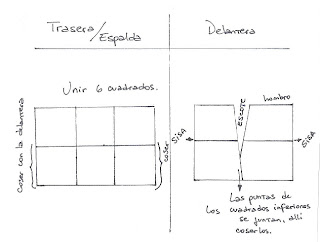 Trasera/Espalda
Delantera
Unir 6 cuadrados.
Coser con la delantera
coser
hombro
ESCOTE
SISA
SISA
Las puntas de
los cuadrados inferiores
se juntan, allí
coserlos.